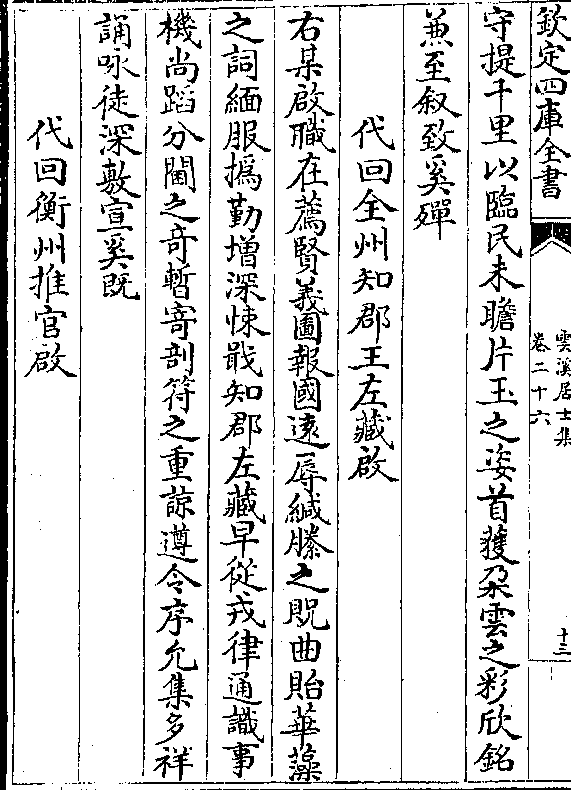 欽定四庫全書
雲溪居士集
卷二十六
十三
守提千里以臨民未瞻片玉之姿首獲朶雲之彩欣銘
兼至叙致奚殫
代回全州知郡王左藏啟
右某啟職在薦賢義圖報國遠辱緘縢之貺曲貽華藻
之詞緬服撝勤增深悚戢知郡左藏早從戎律通識事
機尚蹈分閫之竒暫寄剖符之重諒遵令序允集多祥
誦咏徒深敷宣奚既
代回衡州推官啟